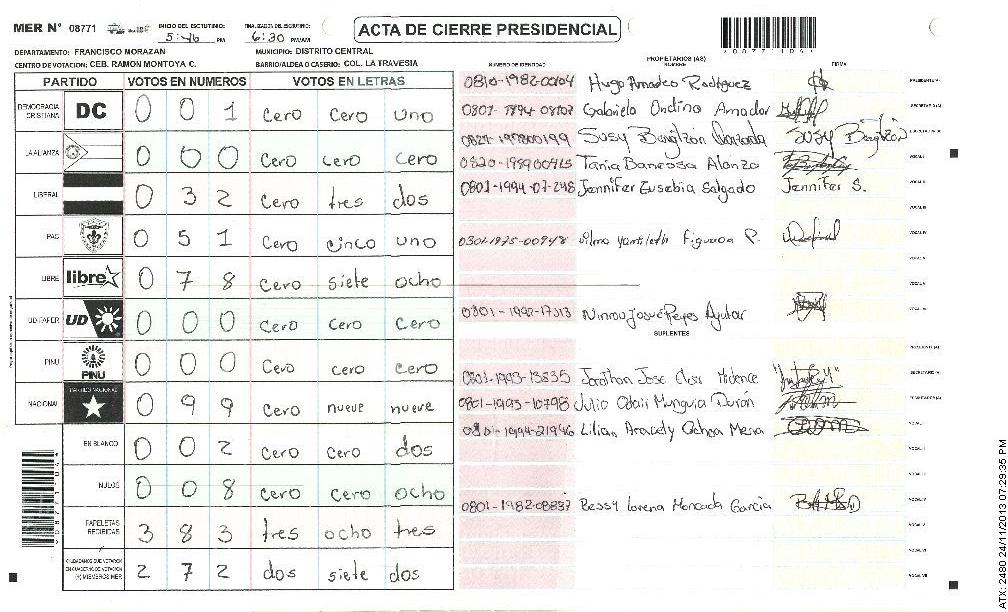 MER N° 08771
INICIO DEL ESCRUTINIO: 5:46 PM
FINALIZACION DEL ESCRUTINIO: 6:30 PM/AM
ACTA DE CIERRE PRESIDENCIAL
DEPARTAMENTO: FRANCISCO MORAZAN
MUNICIPIO: DISTRITO CENTRAL
CENTRO DE VOTACION: CEB. RAMON MONTOYA C.
BARRIO/ALDEA O CASERIO: COL. LA TRAVESIA
PARTIDO VOTOS EN NUMEROS VOTOS EN LETRAS
DEMOCRACIA CRISTIANA DC 0 0 1 cero cero uno
LA ALIANZA 0 0 0 cero cero cero
LIBERAL 0 3 2 cero tres dos
PAC 0 5 1 cero cinco uno
LIBRE libre 0 7 8 cero siete ocho
UD FAPER UD 0 0 0 cero cero cero
PINU PINU 0 0 0 cero cero cero
NACIONAL PARTIDO NACIONAL 0 9 9 cero nueve nueve
EN BLANCO 0 0 2 cero cero dos
NULOS 0 0 8 cero cero ocho
PAPELETAS RECIBIDAS 3 8 3 tres ocho tres
CIUDADANOS QUE VOTARON EN CUADERNO DE VOTACION (+) MIEMBROS MER 2 7 2 dos siete dos
PROPIETARIOS (AS)
NUMERO DE IDENTIDAD NOMBRE FIRMA
0810-1982-00104 Hugo Amadeo Rodriguez PRESIDENTE(A)
Gabriela Ondina Amador SECRETARIO(A)
Susy
0820-198900415 Tania Banessa Alonzo VOCAL I
0801-1994-07248 Jennifer Eusebia Salgado Jennifer S. VOCAL II
VOCAL III
0301-1975-00948 Figueroa P. VOCAL IV
VOCAL V
VOCAL VI
0801-1992-17313 Josué Reyes Aguilar
SUPLENTES
PRESIDENTE (A)
0801-1993-13835 Jonathan Jose Midence SECRETARIO (A)
0801-1993-10798 Julio Odair Munguia Durón
0801-1994-21946 Lilian Aracely Ochoa Mena VOCAL I
VOCAL II
VOCAL III
0801-1982-08837 Bessy Lorena Moncada Garcia VOCAL IV
VOCAL V
VOCAL VI
VOCAL VII
ATX: 2480 24/11/2013 07:29:35 PM